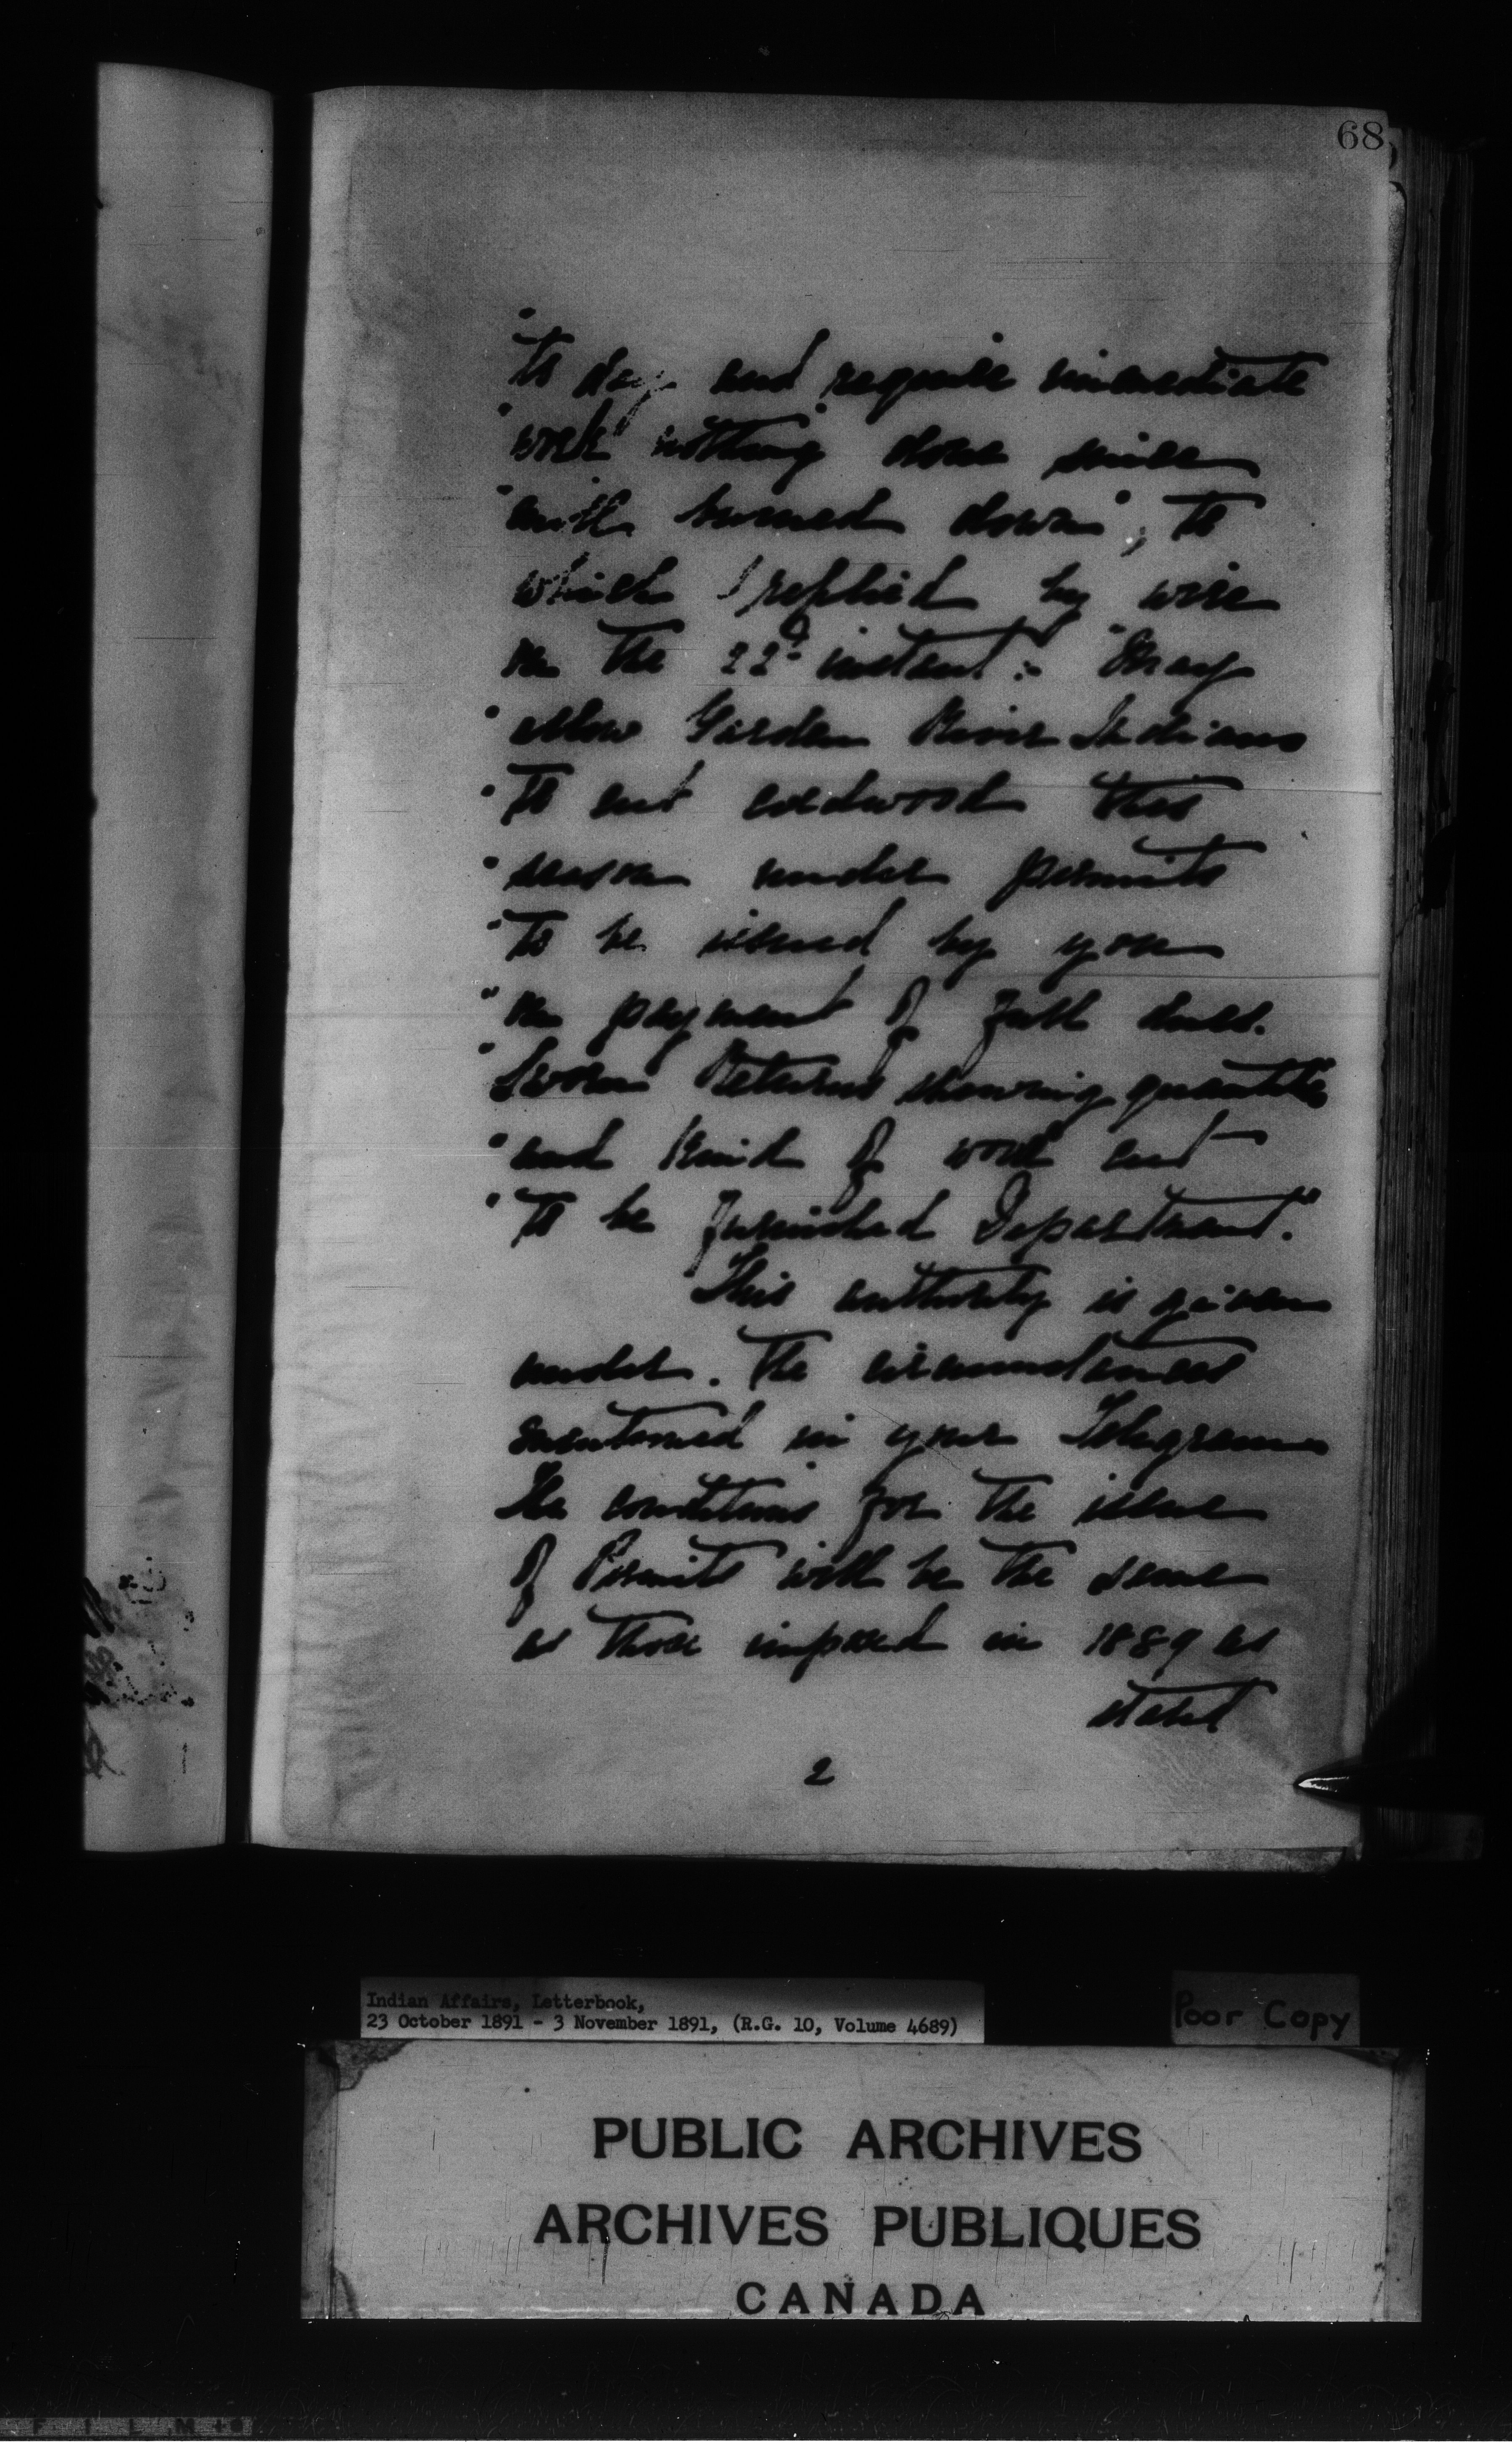 68
"to day and require immediate
"work nothing done since
"mill burned down"; to
which I replied by wire
on the 22d instant:- "May
"allow Garden River Indians
"to cut cordwood this
"season under permits
"to be issued by you
"on payment of full dues.
"Sworn Returns showing quantity
"and Kind of wood cut
"to be furnished Department."
This authority is given
under the circumstances
mentioned in your Telegram
The conditions for the issue
of Permits will be the same
as those imposed in 1889 as
stated
2
Indian Affairs, Letterbook,
23 October 1891 - 3 November 1891, (R.G. 10, Volume 4689)
Poor Copy
PUBLIC ARCHIVES
ARCHIVES PUBLIQUES
CANADA